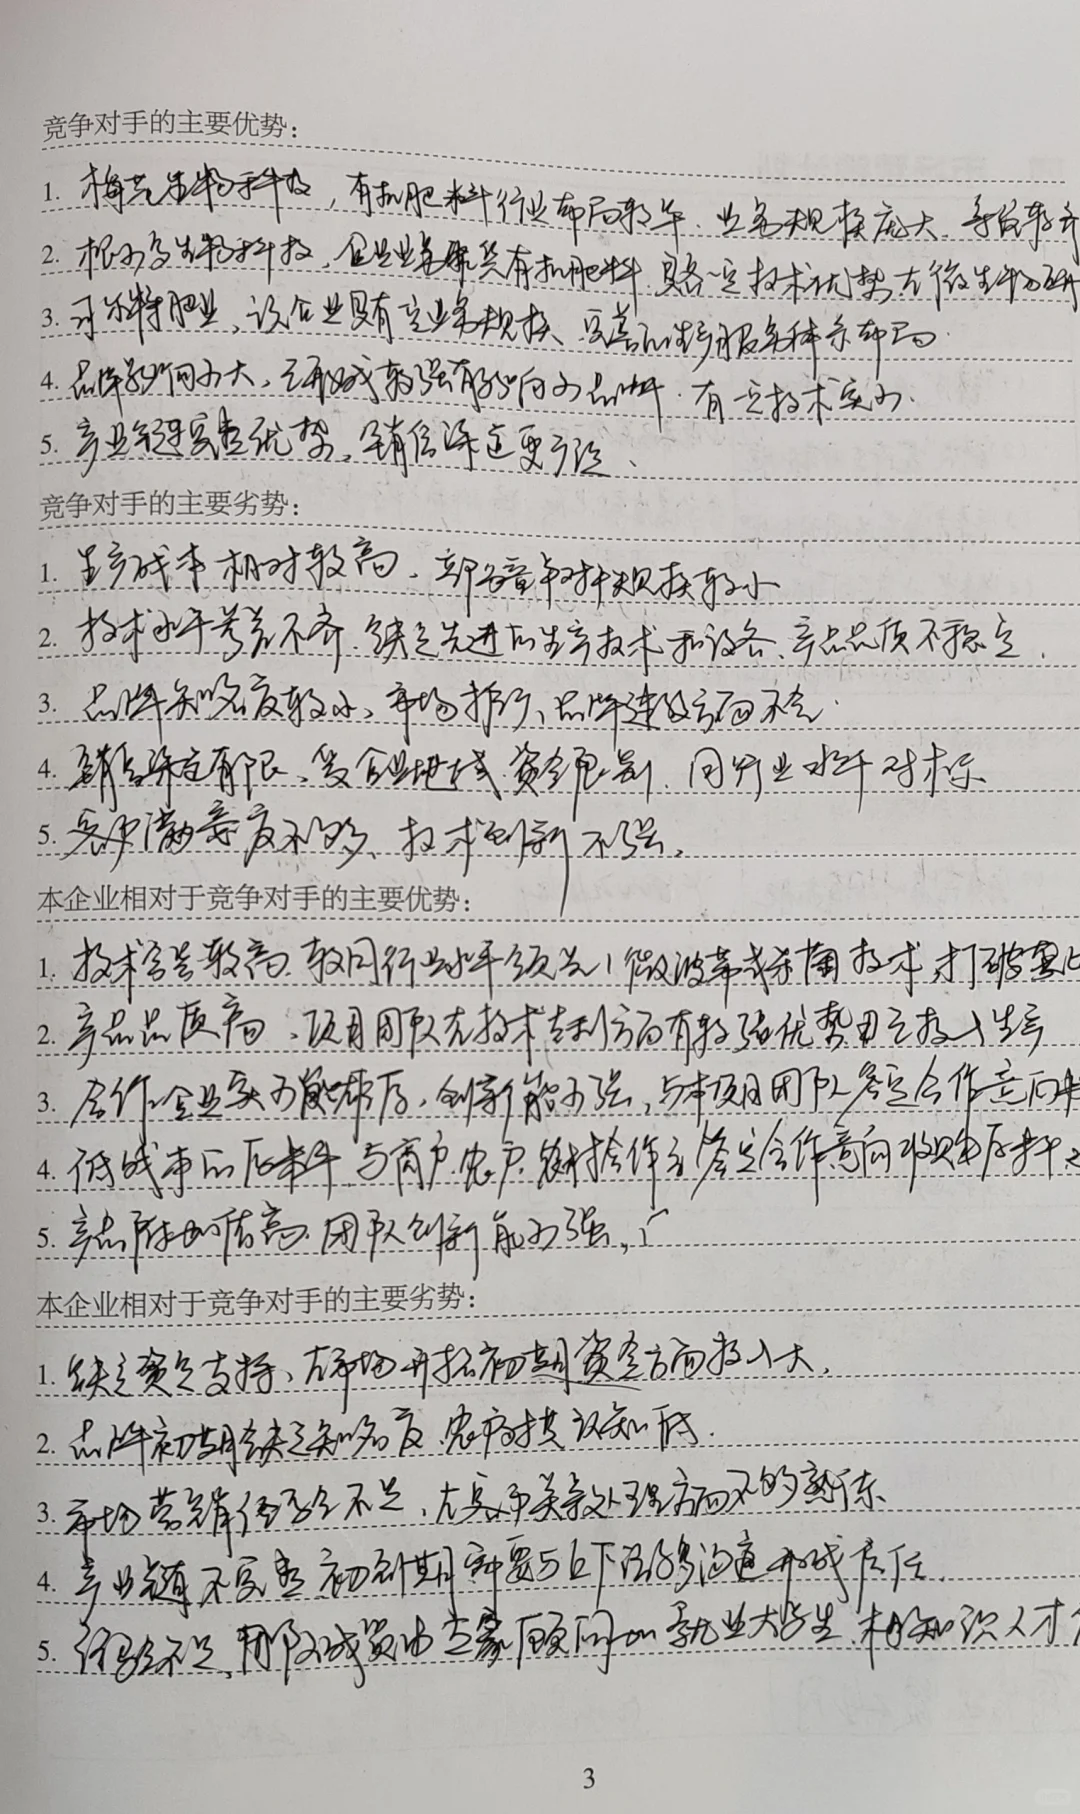 竞争对手的主要优势：
1. 梅花生物科技，有机肥料行业布局较早、业务规模庞大、
2. 根力多生物科技，企业业务聚焦有机肥料、具备一定技术优势 在微生物研
3. 肥业、该企业具有产业务规模、完善的服务体系布局.
4. 品牌影响力大、已形成较强有影响力品牌、有一定技术实力.
5. 产业链完整优势、销售渠道更广泛、
竞争对手的主要劣势：
1. 生产成本相对较高、规模较小
2. 技术水平参差不齐、缺乏先进的生产技术和设备、产品品质不稳定.
3. 品牌知名度较小、市场推广、品牌建设方面不足.
4. 销售渠道有限、受企业地域、资金限制、同行业水平对标
5. 客户满意度不够、技术创新不强.
本企业相对于竞争对手的主要优势：
1. 技术含量较高、较同行业水平领先、微波带式杀菌技术、打破
2. 产品品质高、项目团队在技术专利方面有较强优势已投入生产
3. 合作企业实力雄厚、创新能力强、与本项目团队签定合作意向
4. 低成本的原料 与商户、农户、农村合作社签定合作意向收购原料、
5. 产品附加值高、团队创新能力强、广
本企业相对于竞争对手的主要劣势：
1. 缺乏资金支持、在市场开拓初期资金方面投入大.
2. 品牌初期缺乏知名度、农户对其认知低.
3. 市场营销经验不足、在客户关系处理方面不够熟练
4. 产业链不完整 初创期需要与上下游多沟通 形成信任.
5. 经验不足、团队成员由专家顾问和就业大学生、知识人才
3